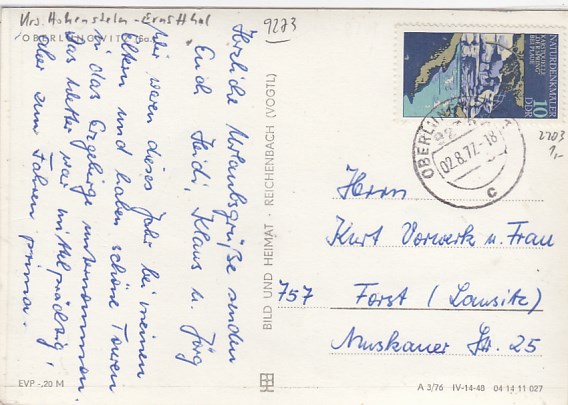 Krs. Hohenstein-Ernstthal
OBERLUNGWITZ (Sa.)
9273
Herzliche Urlaubsgrüße senden
Euch Heidi, Klaus u. Jörg
Wir waren dieses Jahr bei meinen
Eltern und haben schöne Touren
in das Erzgebirge unternommen.
Das Wetter war mittelprächtig,
aber zum Fahren prima.
EVP -,20 M
BILD UND HEIMAT · REICHENBACH (VOGTL)
NATURDENKMALER
DDR
10
OBERLUNGWITZ
02.8.77-18
c
2203
1,-
Herrn
Kurt Vorwerk u. Frau
757 Forst (Lausitz)
Muskauer Str. 25
A 3/76 IV-14-48 04 14 11 027